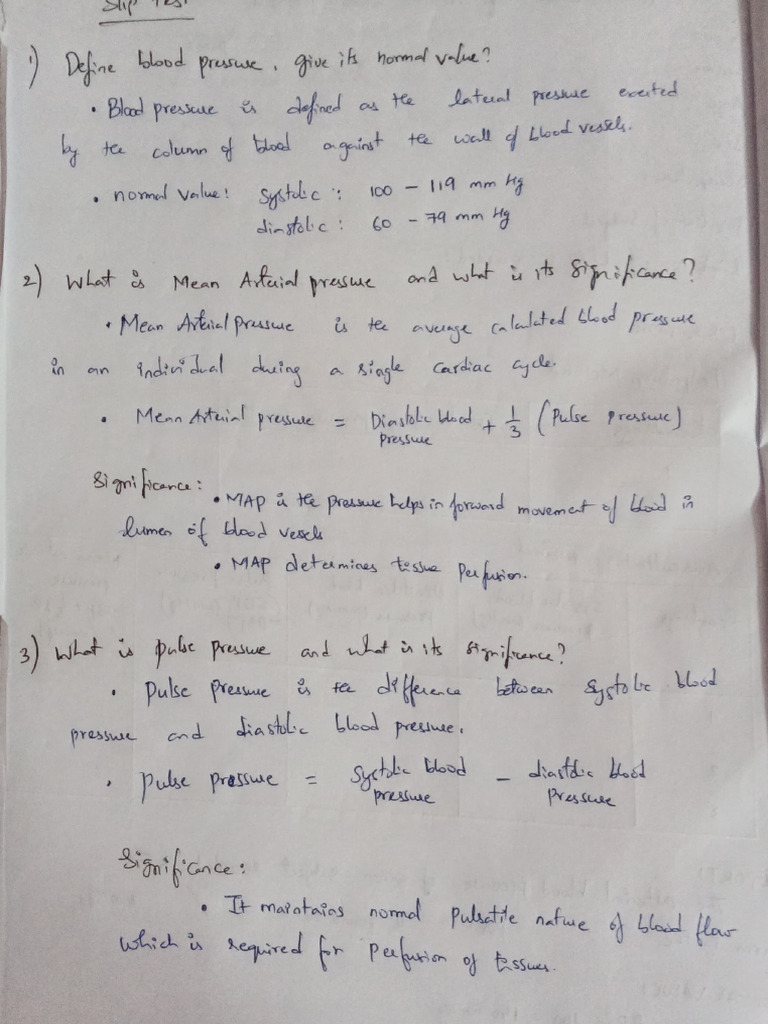 Slip Test
1) Define blood pressure, give its normal value?
• Blood pressure is defined as the lateral pressure exerted
by the column of blood against the wall of blood vessels.
• normal value: Systolic : 100 - 119 mm Hg
diastolic : 60 - 79 mm Hg
2) What is Mean Arterial pressure and what is its Significance?
• Mean Arterial Pressure is the average calculated blood pressure
in an individual during a single cardiac cycle.
• Mean Arterial pressure = Diastolic blood pressure + 1/3 (Pulse pressure)
Significance: • MAP is the pressure helps in forward movement of blood in
lumen of blood vessels
• MAP determines tissue perfusion.
3) What is pulse pressure and what is its significance?
• Pulse pressure is the difference between systolic blood
pressure and diastolic blood pressure.
• Pulse pressure = Systolic blood pressure - diastolic blood pressure
Significance:
• It maintains normal pulsatile nature of blood flow
which is required for perfusion of tissues.